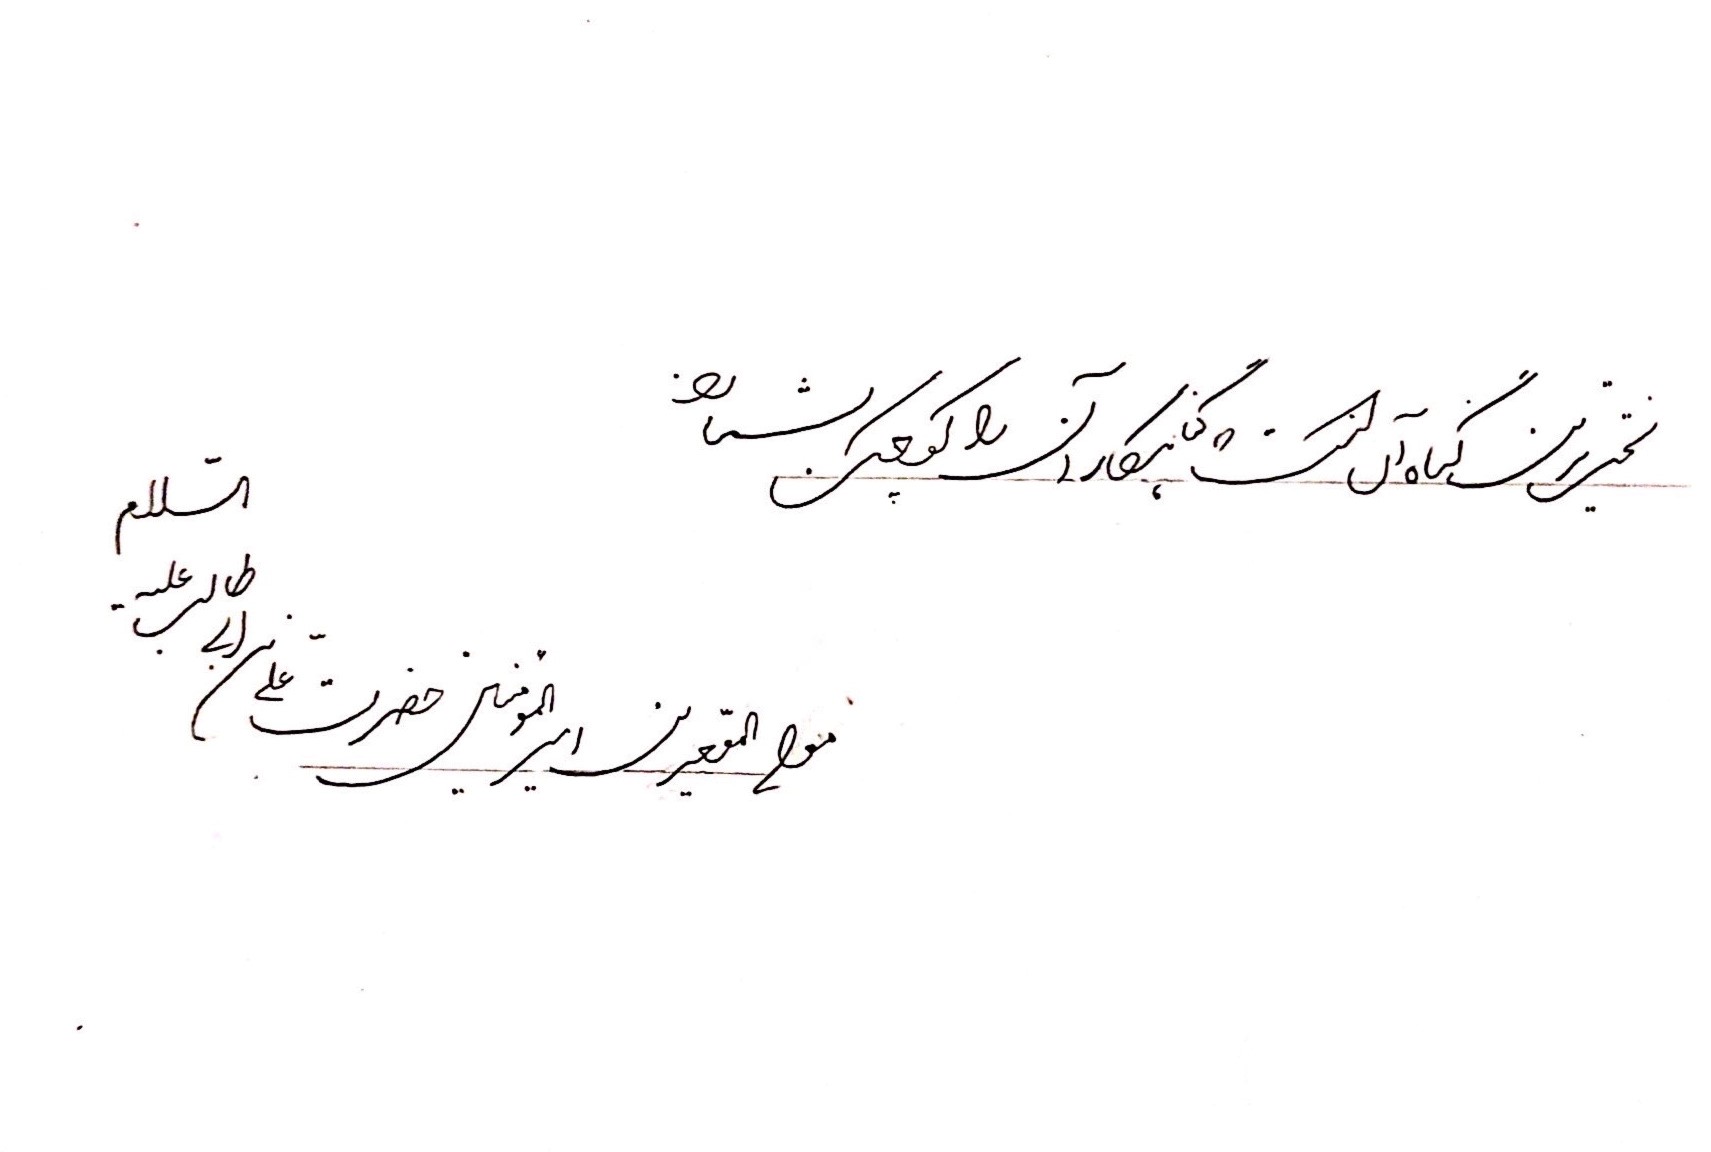 سخت‌ترین گناه آن است که گناهکار آن را کوچک بشمارد
مولی الموحدین امیرالمؤمنین حضرت علی بن ابی طالب علیه السّلام